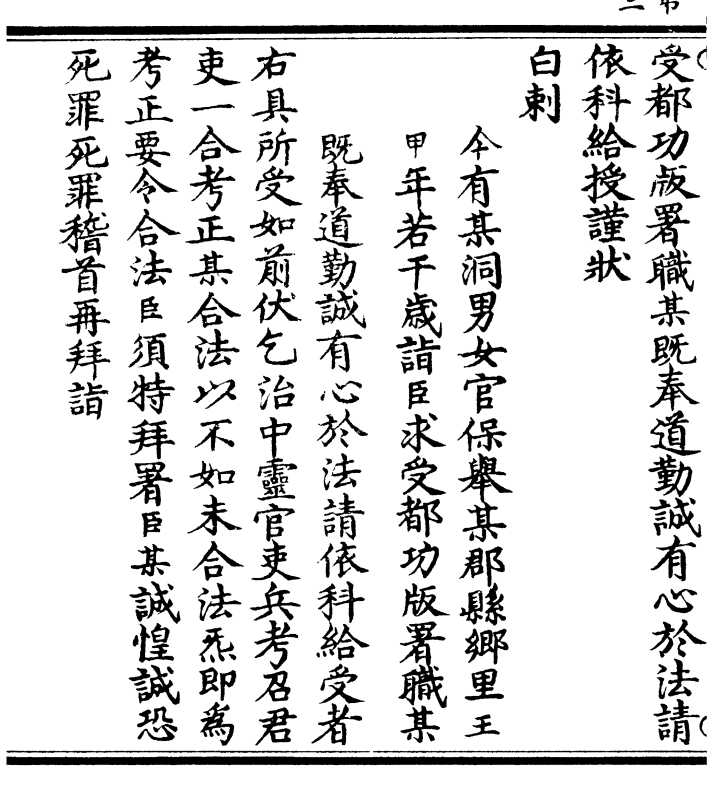 受都功版署職某既奉道勤誠有心於法請
依科給授謹狀
白刺
今有某洞男女官保舉某郡縣鄉里王
甲年若干歲詣臣求受都功版署職某
既奉道勤誠有心於法請依科給受者
右具所受如前伏乞治中靈官吏兵考召君
吏一合考正某合法以不如未合法炁即為
考正要令合法臣須特拜署臣某誠惶誠恐
死罪死罪稽首再拜詣